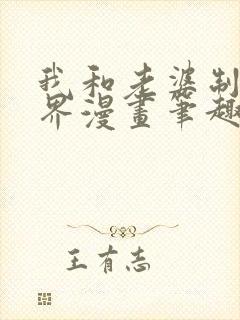 我和老婆制
界漫畫筆趣
王有志